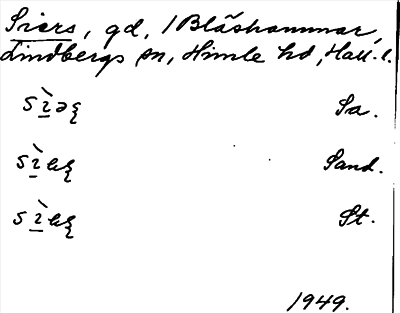 Siers, gd, /Blåshammar,
Lindbergs sn, Himle hd, Hall. l.
Sa.
Sand.
St.
1949.